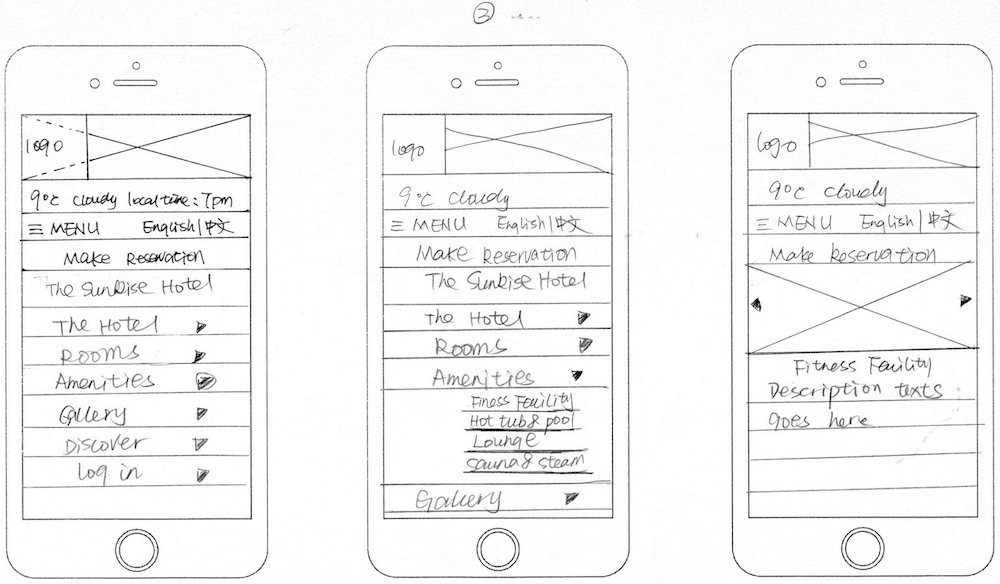 ③ ....
logo
9°C cloudy local time: 7pm
☰ MENU English|中文
Make Reservation
The Sunrise Hotel
The Hotel
Rooms
Amenities
Gallery
Discover
log in
logo
9°C cloudy
☰ MENU English|中文
Make Reservation
The Sunrise Hotel
The Hotel
Rooms
Amenities
Finess Facility
Hot tub & pool
Lounge
Sauna & steam
Gallery
logo
9°C cloudy
☰ MENU English|中文
Make Reservation
Fitness Facility
Description texts
goes here